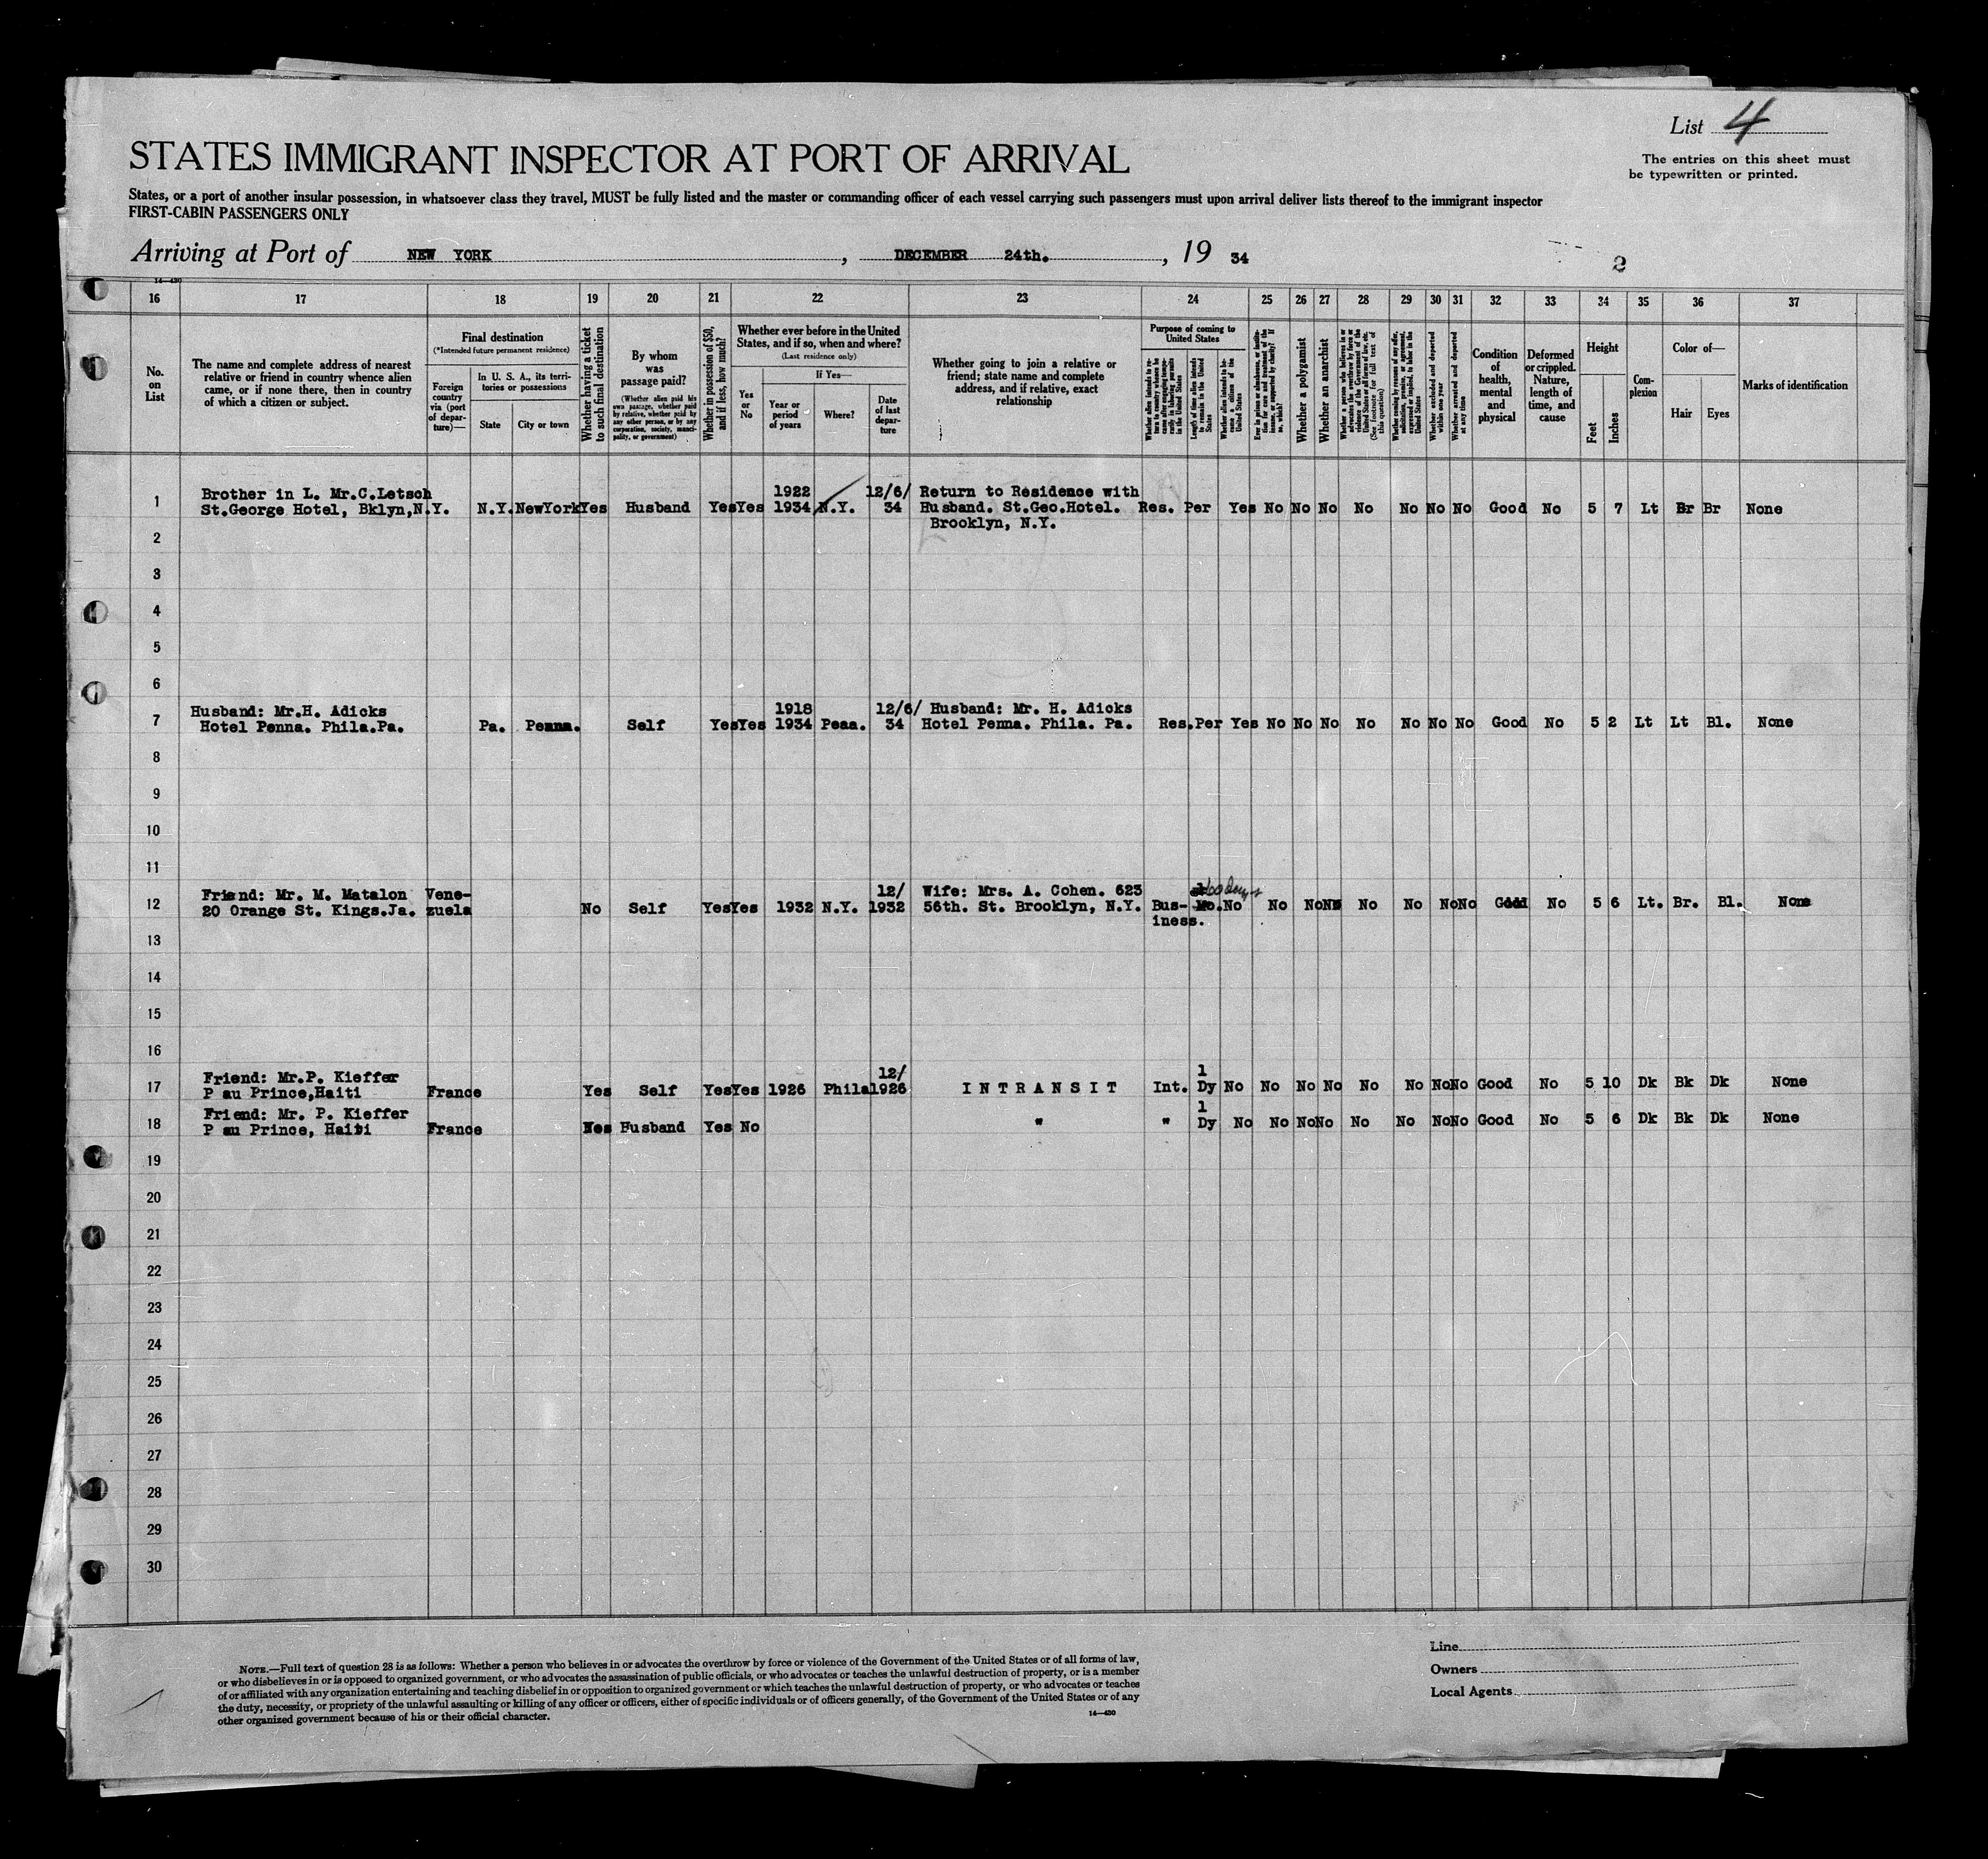 List 4
The entries on this sheet must
be typewritten or printed.
STATES IMMIGRANT INSPECTOR AT PORT OF ARRIVAL
States, or a port of another insular possession, in whatsoever class they travel, MUST be fully listed and the master or commanding officer of each vessel carrying such passengers must upon arrival deliver lists thereof to the immigrant inspector
FIRST-CABIN PASSENGERS ONLY
Arriving at Port of NEW YORK, DECEMBER 24th., 19 34
2
14—430
16 17 18 19 20 21 22 23 24 25 26 27 28 29 30 31 32 33 34 35 36 37
No.
on
List
The name and complete address of nearest
relative or friend in country whence alien
came, or if none there, then in country
of which a citizen or subject.
Final destination
(*Intended future permanent residence)
Foreign
country
via (port
of depar-
ture)—
In U. S. A., its terri-
tories or possessions
State
City or town
Whether having a ticket
to such final destination
By whom
was
passage paid?
(Whether alien paid his
own passage, whether paid
by relative, whether paid by
any other person, or by any
corporation, society, munici-
pality, or government)
Whether in possession of $50,
and if less, how much?
Whether ever before in the United
States, and if so, when and where?
(Last residence only)
Yes
or
No
If Yes—
Year or
period
of years
Where?
Date
of last
depar-
ture
Whether going to join a relative or
friend; state name and complete
address, and if relative, exact
relationship
Purpose of coming to
United States
Whether alien intends to re-
turn to country whence he
came after engaging tempo-
rarily in laboring pursuits
in the United States
Length of time alien intends
to remain in the United
States
Whether alien intends to be-
come a citizen of the
United States
Ever in prison or almshouse, or institu-
tion for care and treatment of the
insane, or supported by charity? If
so, which?
Whether a polygamist
Whether an anarchist
Whether a person who believes in or
advocates the overthrow by force or
violence of the Government of the
United States or all forms of law, etc.
(See footnote for full text of
this question)
Whether coming by reason of any offer,
solicitation, promise, or agreement,
expressed or implied, to labor in the
United States
Whether excluded and deported
within one year
Whether arrested and deported
at any time
Condition
of
health,
mental
and
physical
Deformed
or crippled.
Nature,
length of
time, and
cause
Height
Feet
Inches
Com-
plexion
Color of—
Hair
Eyes
Marks of identification
1922 12/6/ Return to Residence with
1 Brother in L. Mr.C.Letsch
St.George Hotel, Bklyn,N.Y. N.Y. NewYork Yes Husband Yes Yes 1934 N.Y. 34 Husband. St.Geo.Hotel. Res. Per Yes No No No No No No No Good No 5 7 Lt Br Br None
Brooklyn, N.Y.
2
3
4
5
6
Husband: Mr.H. Adicks 1918 12/6/ Husband: Mr. H. Adicks
7 Hotel Penna. Phila.Pa. Pa. Penna. Self Yes Yes 1934 Peaa. 34 Hotel Penna. Phila. Pa. Res. Per Yes No No No No No No No Good No 5 2 Lt Lt Bl. None
8
9
10
11
Friend: Mr. M. Matalon Vene- 12/ Wife: Mrs. A. Cohen. 623 60 days
12 20 Orange St. Kings.Ja. zuela No Self Yes Yes 1932 N.Y. 1932 56th. St. Brooklyn, N.Y. Bus- Mo. No No No No No No No No Good No 5 6 Lt. Br. Bl. None
iness.
13
14
15
16
Friend: Mr.P. Kieffer 12/ 1
17 P au Prince,Haiti France Yes Self Yes Yes 1926 Phila 1926 INTRANSIT Int. Dy No No No No No No No No Good No 5 10 Dk Bk Dk None
Friend: Mr. P. Kieffer 1
18 P au Prince, Haiti France Yes Husband Yes No " " Dy No No No No No No No No Good No 5 6 Dk Bk Dk None
19
20
21
22
23
24
25
26
27
28
29
30
NOTE.—Full text of question 28 is as follows: Whether a person who believes in or advocates the overthrow by force or violence of the Government of the United States or of all forms of law,
or who disbelieves in or is opposed to organized government, or who advocates the assassination of public officials, or who advocates or teaches the unlawful destruction of property, or is a member
of or affiliated with any organization entertaining and teaching disbelief in or opposition to organized government or which teaches the unlawful destruction of property, or who advocates or teaches
the duty, necessity, or propriety of the unlawful assaulting or killing of any officer or officers, either of specific individuals or of officers generally, of the Government of the United States or of any
other organized government because of his or their official character.
14—430
Line
Owners
Local Agents